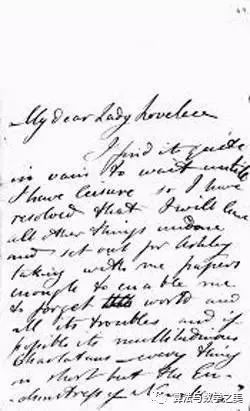 My dear Lady Lovelace
I find it quite
in vain to wait until
I have leisure so I have
resolved that I will leave
all other things undone
and set out for Ashley
taking with me papers
enough to enable me
to forget this world and
all its troubles and if
possible its multitudinous
Charlatans – every thing
in short but the En-
chantress of Number
算法与数学之美